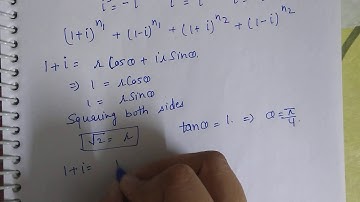 i = -i
(1+i)^n₁ + (1-i)^n₁ + (1+i)^n₂ + (1-i)^n₂
1+i = r Cosθ + i r Sinθ.
⇒ 1 = r Cosθ
1 = r Sinθ
Squaring both sides
√2 = r
tanθ = 1. ⇒ θ = π/4.
1+i =